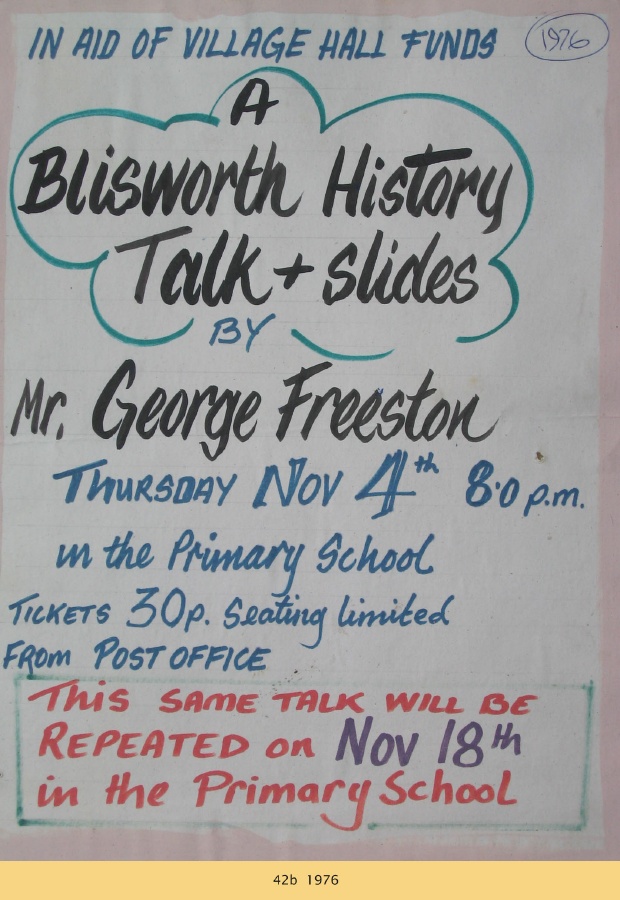 IN AID OF VILLAGE HALL FUNDS
1976
A
Blisworth History
Talk + slides
BY
Mr. George Freeston
THURSDAY NOV 4th 8.0 p.m.
in the Primary School
TICKETS 30p. Seating limited
FROM POST OFFICE
THIS SAME TALK WILL BE
REPEATED on Nov 18th
in the Primary School
42b 1976